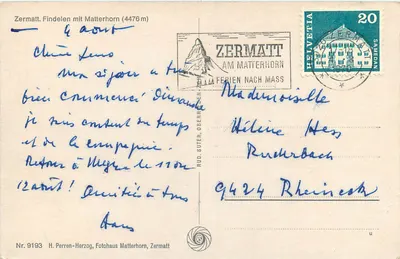 Zermatt. Findelen mit Matterhorn (4476 m)
4 août
Mon séjour a très
bien commencé!
je suis content du temps
et de la compagnie.
le 11 ou
12 août! Amitiés à tous
Hans
ZERMATT
AM MATTERHORN
FERIEN NACH MASS
HELVETIA
20
Mademoiselle
Hélène Hess
Ruderbach
9424 Rheineck
Nr. 9193 H. Perren-Herzog, Fotohaus Matterhorn, Zermatt